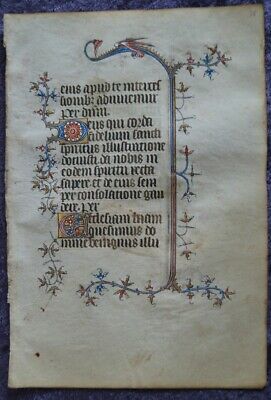 eius apud te interces
sionib; adiuuemur
per dnm.
Deus qui corda
fidelium sancti
spiritus illustratione
docuisti da nobis in
eodem spiritu recta
sapere et de eius sem
per consolatione gau
dere. per
Ecclesiam tuam
quesumus do
mine benignus illu